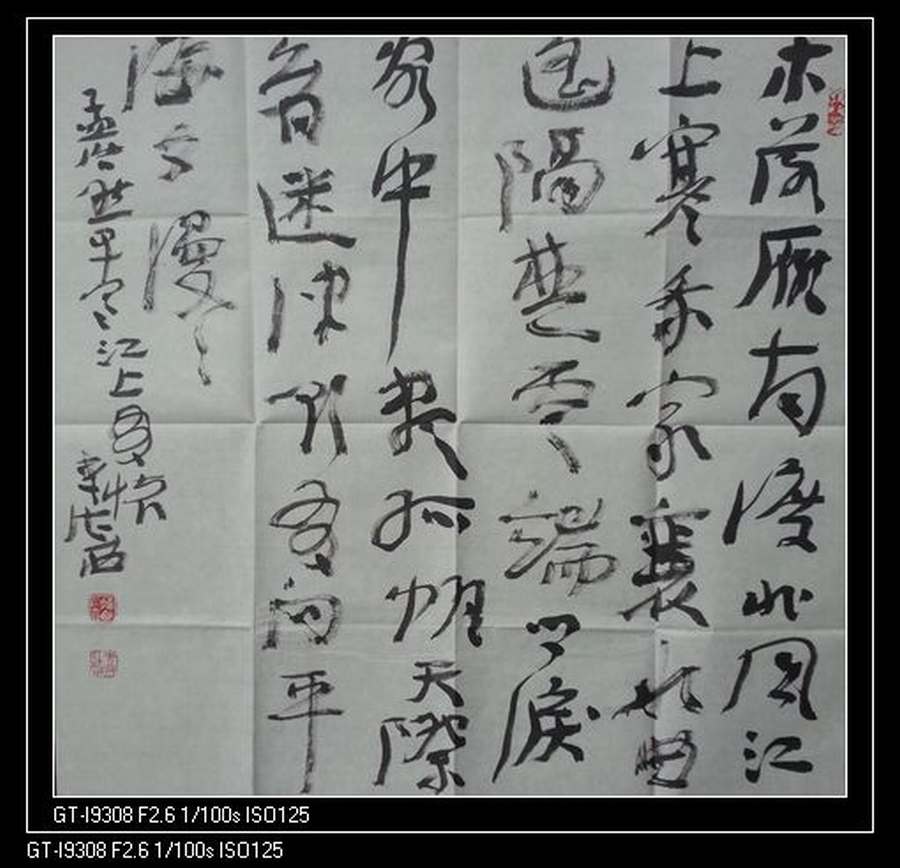 木落雁南渡北風江
上寒我家襄水曲
遥隔楚雲端乡淚
客中尽孤帆天際
看迷津欲有问平
海夕漫々
孟浩然早寒江上有怀
GT-I9308 F2.6 1/100s ISO125
GT-I9308 F2.6 1/100s ISO125